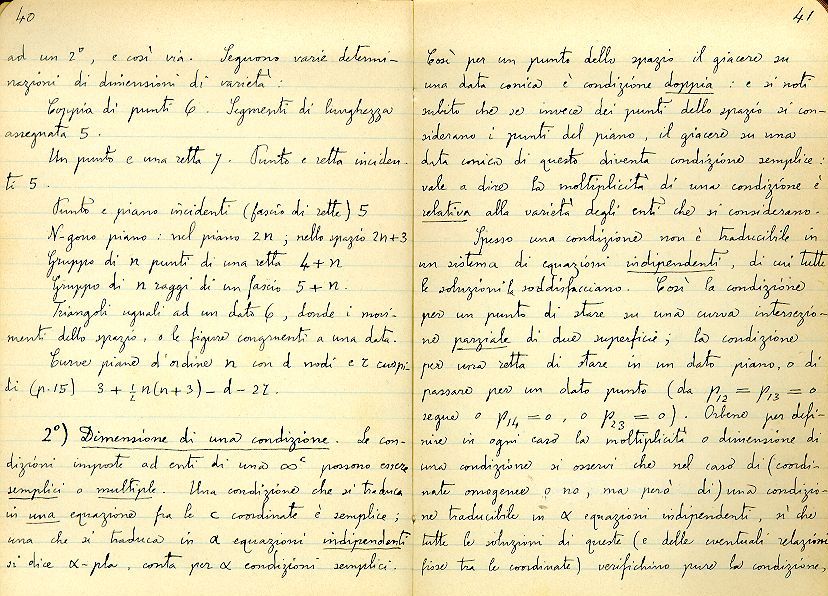 40
ad un 2°, e così via. Seguono varie determi-
nazioni di dimensioni di varietà:
Coppia di punti 6. Segmenti di lunghezza
assegnata 5.
Un punto e una retta 7. Punto e retta inciden-
ti 5.
Punto e piano incidenti (fascio di rette) 5
N-gono piano: nel piano 2n; nello spazio 2n+3
Gruppo di n punti di una retta 4+n
Gruppo di n raggi di un fascio 5+n.
Triangoli uguali ad un dato 6, donde i movi-
menti dello spazio, o le figure congruenti a una data.
Curve piane d'ordine n con d nodi e r cuspi-
di (p. 15) 3 + ½ n(n+3) - d - 2r.
2°) Dimensione di una condizione. Le con-
dizioni imposte ad enti di una ∞^c possono essere
semplici o multiple. Una condizione che si traduca
in una equazione fra le c coordinate è semplice;
una che si traduca in α equazioni indipendenti
si dice α-pla, conta per α condizioni semplici.
41
Così per un punto dello spazio il giacere su
una data conica è condizione doppia: e si noti
subito che se invece dei punti dello spazio si con-
siderano i punti del piano, il giacere su una
data conica di questo diventa condizione semplice:
vale a dire la moltiplicità di una condizione è
relativa alla varietà degli enti che si considerano.
Spesso una condizione non è traducibile in
un sistema di equazioni indipendenti, di cui tutte
le soluzioni la soddisfacciano. Così la condizione
per un punto di stare su una curva intersezio-
ne parziale di due superficie; la condizione
per una retta di stare in un dato piano, o di
passare per un dato punto (da p12 = p13 = 0
segue o p14 = 0, o p23 = 0). Orbene per defi-
nire in ogni caso la moltiplicità o dimensione di
una condizione si osservi che nel caso di (coordi-
nate omogenee o no, ma però di) una condizio-
ne traducibile in α equazioni indipendenti, sì che
tutte le soluzioni di queste (e delle eventuali relazioni
fisse tra le coordinate) verifichino pure la condizione,